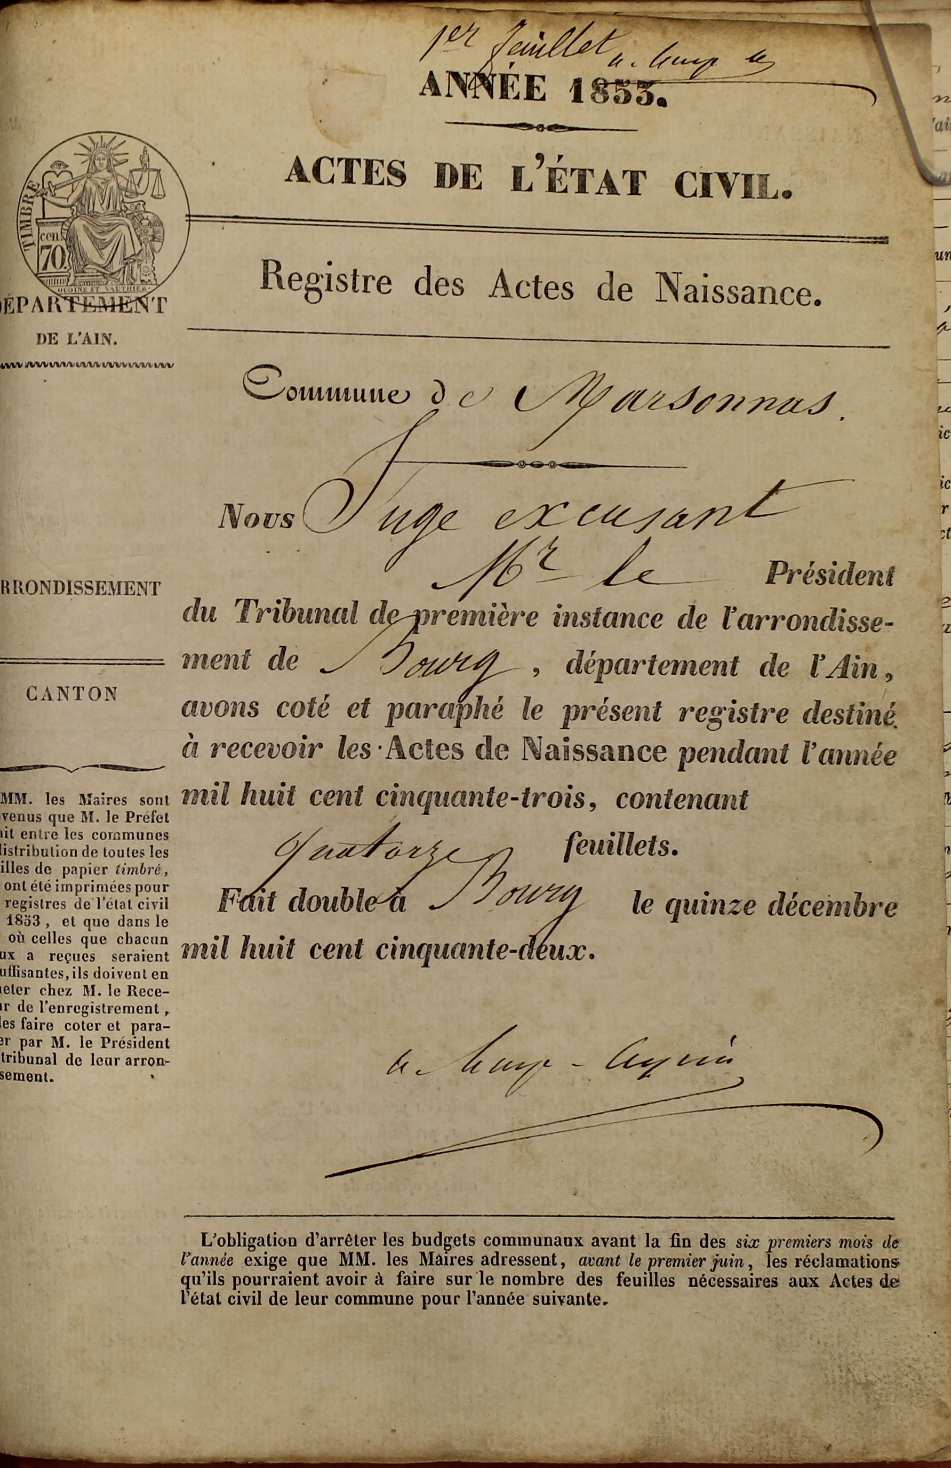 1er feuillet
ANNÉE 1853.
ACTES DE L'ÉTAT CIVIL.
TIMBRE
cen
70
Registre des Actes de Naissance.
DÉPARTEMENT
DE L'AIN.
Commune de Marsonnas.
Nous Juge excusant
Mr le Président
du Tribunal de première instance de l'arrondisse-
ment de Bourg, département de l'Ain,
avons coté et paraphé le présent registre destiné
à recevoir les Actes de Naissance pendant l'année
mil huit cent cinquante-trois, contenant
quatorze feuillets.
Fait double à Bourg le quinze décembre
mil huit cent cinquante-deux.
RRONDISSEMENT
CANTON
MM. les Maires sont
venus que M. le Préfet
ait entre les communes
distribution de toutes les
illes de papier timbré,
ont été imprimées pour
registres de l'état civil
1853, et que dans le
où celles que chacun
ux a reçues seraient
uffisantes, ils doivent en
heter chez M. le Rece-
ur de l'enregistrement,
les faire coter et para-
er par M. le Président
tribunal de leur arron-
sement.
L'obligation d'arrêter les budgets communaux avant la fin des six premiers mois de
l'année exige que MM. les Maires adressent, avant le premier juin, les réclamations
qu'ils pourraient avoir à faire sur le nombre des feuilles nécessaires aux Actes de
l'état civil de leur commune pour l'année suivante.